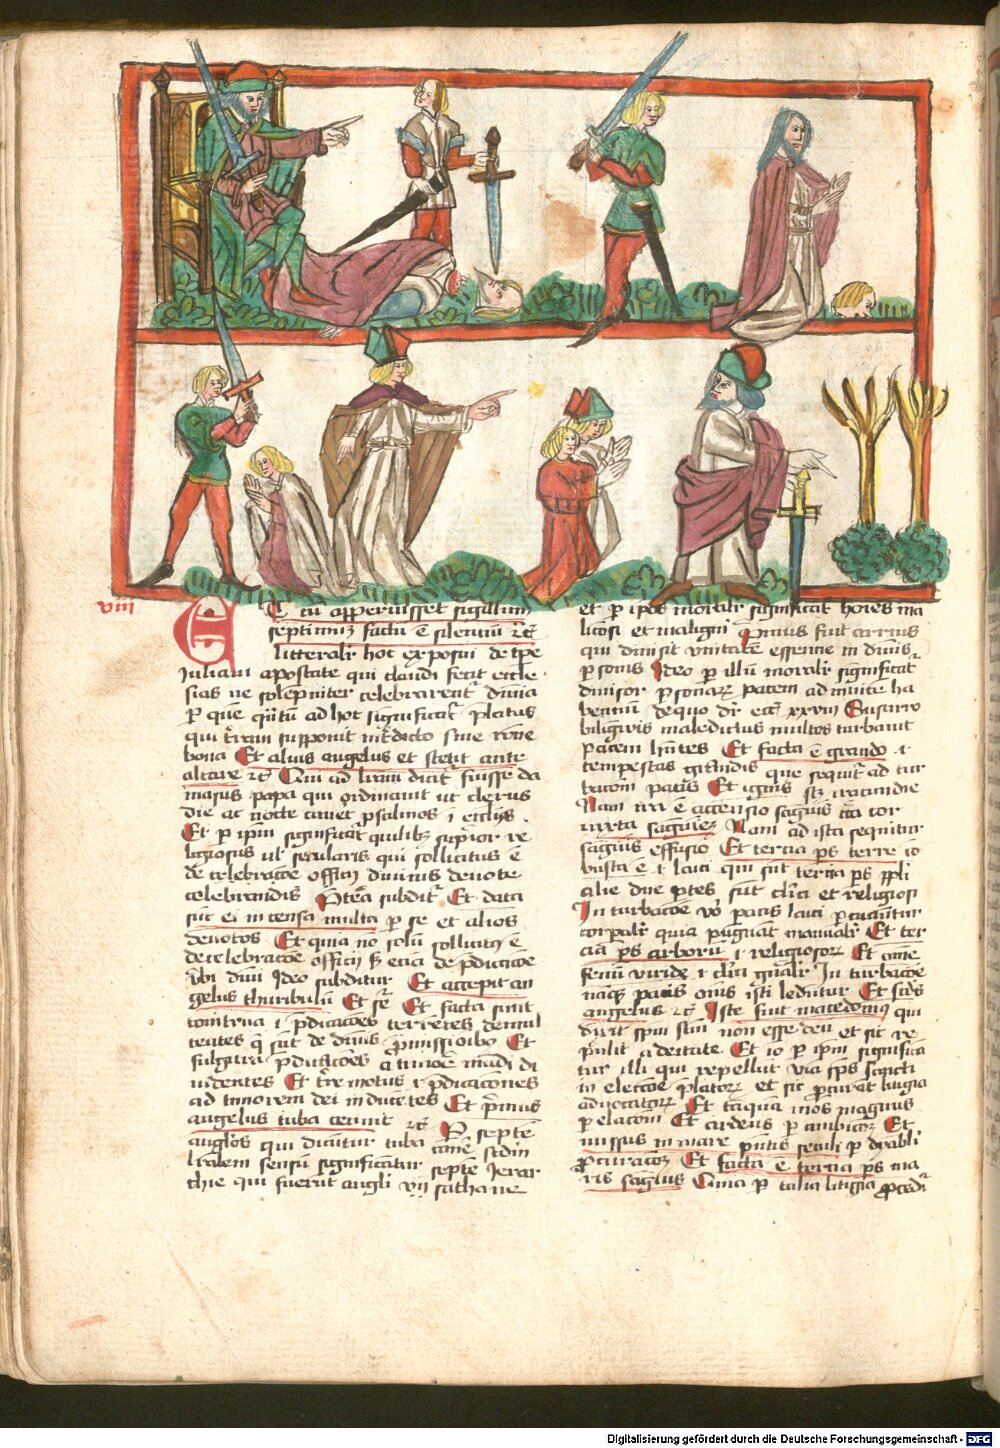 viii
Et cu apperuisset sigillum
septimu factu e silentiu etc
litteralr hoc exposui de tpe
Iuliani apostate qui claudi fecit eccle
sias ne solepniter celebrarent divia
p que qntu ad hoc significatr platus
qui tram supponit intdicto sine rone
bona Et alius angelus et stetit ante
altare etc Qui ad lram dicitr fuisse da
masus papa qui ordinavit ut clerus
die ac nocte caneret psalmos i ecclijs
Et p ipm significatr quilibz superior re
ligiosus ul secularis qui sollicitus e
de celebracoe officij divinis devote
celebrandis Ptea subditr Et data
sut ei incensa multa p se et alios
devotos Et quia no solu sollicitus e
de celebracoe officij sz etia de pdicacoe
vbi divi Ideo subditur Et accepit an
gelus thuribulu Et se Et facta sunt
tonitrua i pdicacoes terretes
q sut de divis pmissioibus Et
fulgura pdicacoes a timoe mudi
Et tre motus i pdicacones
ad timorem dei inducetes Et primus
angelus tuba cecinit etc P septe
anglos qui dicutur tuba cane scdm
lralem sensu significatur septe Ierar
chie qui fuerut angli vij sathane
et p ipos moralr significat hoies ma
liciosi et maligni Primus fuit arrius
qui divisit unitate essencie in divis
psonis Ideo p illu moralr significat
divisor psonarz pacem ad invice ha
bentiu de quo dr ecc xxviij Susurro
biligwis maledictus multos turbavit
pacem hntes Et facta e grando i
tempestas grandis que sequitr ad tur
bacom pacis Et ignis sz iracundie
Nam ira e accensio sagwis circa cor
mixta sagwiez Nam ad ista sequitur
sagwis effusio Et tercia ps terre co
busta e i laici qui sut tercia ps ppli
alie due ptes sut clici et religiosi
In turbacoe vo pacis laici pcuciuntur
corpalir quia pugnat manualr Et ter
cia ps arborum i religiosorz Et ome
fenu viride i clici gnalr In turbacoe
namqz pacis oms isti leduntur Et scds
angelus etc Iste fuit macedonius qui
dixit spm scm non esse deu et sic re
pulit a deitate Et io p ipm significa
tur illi qui repellut via sps sancti
in electoe platorz et sic pcurat litigia
advocatorz Et taqua mos magnus
p elacom Et ardens p ambicoz Et
missus in mare pntis seculi p dyaboli
pcuracoz Et facta e tercia ps ma
ris sagwis Quia p talia litigia pcedr
Digitalisierung gefördert durch die Deutsche Forschungsgemeinschaft - DFG